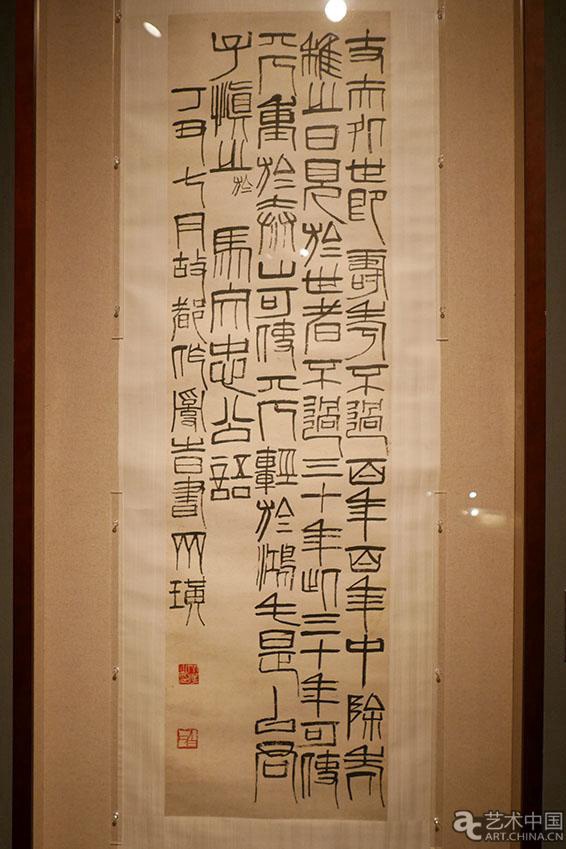 丈夫処世即壽考不過百年百年中除老
稚之日見於世者不過三十年此三十年可使
丌人重於泰山可使丌人輕於鴻毛是以君
子慎之於 馬文忠公語
丁丑七月故都作書齊璜
艺术中国
ART.CHINA.CN